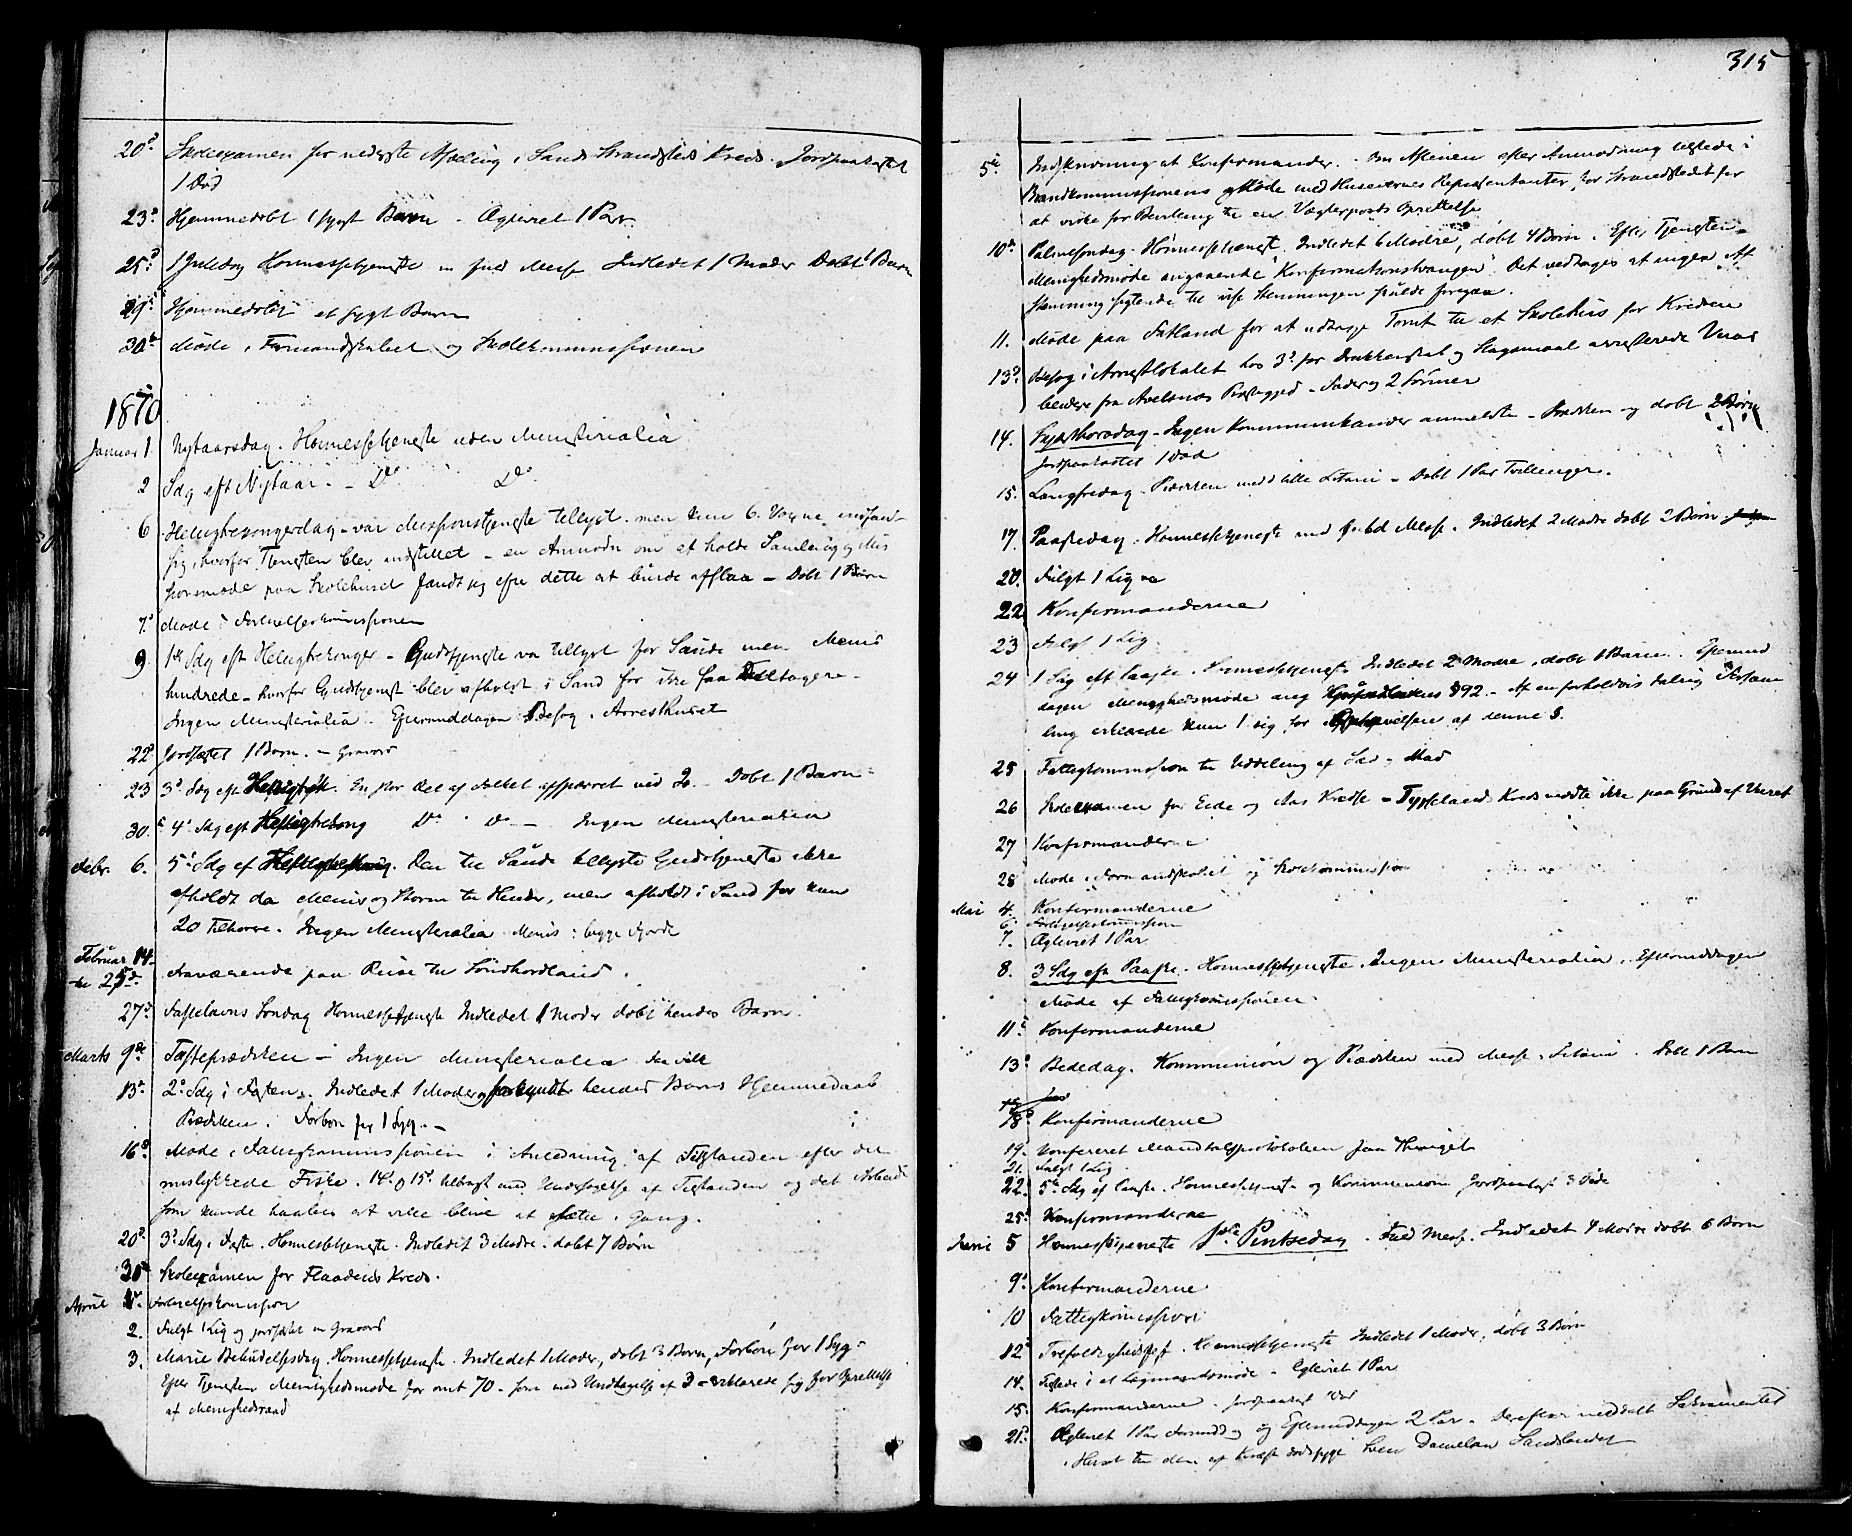 20d Skoleexamen for nederste Afdeling i Sands Strandsteds Kreds. Jordpaakastet
1 Død
23d Hjemmedøbt 1 sygt Barn. Ægteviet 1 Par.
25d 1 Juledag Høimessetjeneste m fuld Messe Indledet 1 Moder Døbt 1 Barn
29d Hjemmedøbt et sygt Barn
30te Møde i Formandskabet og Skolekommissionen
1870
Januar 1 Nytaarsdag. Høimessetjeneste uden Ministerialia
2 Sdg eft Nytaar. - Do Do
6 Helligtrekongerdag - var Missionstjeneste tillyst. men kun 6. Voxne indfandt
sig, hvorfor Tjenesten blev indstillet - en Anmodn om at holde Samling og Mis
sionsmøde paa Skolehuset fandt jeg efter dette at burde afslaa - Døbt 1 Barn
7d Møde i Forligelseskommissionen
9 1ste Sdg eft Helligtrekonger - Gudstjeneste var tillyst for Saude men Menis
hindrede - hvorfor Gudstjenest blev afholdt i Sand for ikke faa Deeltagere -
Ingen Ministerialia. Eftermiddagen Besøg i Arresthuset
22d Jordfæstet 1 Barn. - Gravøl
23 3d Sdg eft Helligtrk. En stor Del af Folket afsperret ved Is. Døbt 1 Barn -
30te 4d Sdg eft Helligtrekong Do Do - Ingen Ministerialia
Febr. 6. 5d Sdg ef Helligtrekong. Den til Saude tillyste Gudstjeneste ikke
afholdt da Menis og Storm til Hinder, men afholdt i Sand for kun
20 Tilhørere. Ingen Ministerialia Menis i begge Fjorde
Februar 14
til 25de Fraværende paa Reise til Søndhordland.
27d Fastelavns Søndag Høimessetjeneste Indledet 1 Moder døbt hendes Barn.
Marts 9de Fasteprædiken - Ingen Ministerialia
13de 2d Sdg i Fasten. Indledet 1 Moder og forkyndt hendes Barns Hjemmedaab
Prædiken. Forbøn for 1 Syg. -
16d Møde i Fattigkommissionen i Anledning af Tilstanden efter det
mislykkede Fiske. 14d o 15d tilbragt med Undersøgelse af Tilstanden og det Arbeide
som kunde haabes at ville blive at sætte i Gang.
20d 3d Sdg i Faste. Høimessetjeneste. Indledet 3 Mødre. døbt 7 Børn
30te Skoleexamen for Flaadens Kreds.
April 1ste Forligelseskommission
2. Fulgt 1 Lig og jordfæstet m Gravøl
3. Marie Bebudelsesdag. Høimessetjeneste. Indledet 1 Moder, døbt 3 Børn, Forbøn for 1 Syg -
Efter Tjenesten Menighedsmøde for omt 70 - som med Undtagelse af 3 - erklærede sig for Oprettelse
af Menighedsraad
315
5te Indskrivning af Konfirmander. - Om Aftenen efter Anmodning tilstede i
Brandkommissionens Møde med Huseiernes Repræsentanter for Strandstedet for
at virke for Bevilling til en Vægterposts Oprettelse
10de Palmesøndag. Høimessetjeneste. Indledet 6 Mødre, døbt 4 Børn. Efter Tjenesten
Menighedsmøde angaaende "Konfirmationstvangen". Det vedtoges at ingen Af
stemning sigtende til vise Stemningen skulde foregaa.
11. Møde paa Jatland for at udtage Tomt til et Skolehus for Kredsen
13d Besøg i Arrestlokalet hos 3d for Drukkenskab og Slagsmaal arresterede
fra Avelsnæs Præstegjed - Fader og 2 Sønner
14. Skjærthorsdag - Ingen Kommunikanter anmeldte - Prædiken og døbt 2 Børn
Jordpaakastet 1 Død
15. Langfredag. Prædiken med lille Litani - Døbt 1 Par Tvillinger.
17. Paaskedag. Høimessetjeneste med fuld Messe. Indledet 2 Mødre døbt 2 Børn
20. Fulgt 1 Lig
22 Konfirmanderne
23 Fulgt 1 Lig
24 1 Sdg eft Paaske. Høimessetjeneste Indledet 2 Mødre, døbt 1 Barn. Eftermid
dagen Menighedsmøde ang §92. - Af en forholdsvis talrig Forsam
ling erklærede kun 1 sig for Ophævelsen af denne §.
25 Fattigkommission til Uddeling af Sæd o Mad
26 Skoleexamen for Eide og Aas Kredse - Tysseland Kreds mødte ikke paa Grund af Veiret
27 Konfirmanderne
28 Møde i Formandskabet og Skolekommission
Mai 4. Konfirmanderne
6. Forligelseskommission
7. Ægteviet 1 Par
8. 3 Sdg eft Paaske. Høimessetjeneste. Ingen Ministerialia. Eftermiddagen
Møde af Fattigkommissionen.
11te Konfirmanderne
13d Bededag. Kommunion og Prædiken med Messe o Litani. Døbt 1 Barn
18d Konfirmanderne
19. Konfereret Mandtalsprotokollen paa Thinget
21. Fulgt 1 Lig
22. 5te Sdg ef Paaske. Høimessetjeneste og Kommunion Jordpaakast 3 Døde
25d Konfirmanderne
Juni 5 Høimessetjeneste 1ste Pintsedag. Fuld Messe. Indledet 4 Mødre døbt 6 Børn
9d Konfirmanderne
10 Fattigkommission
12d Trefoldighedsfest. Høimessetjeneste Indledet 1 Moder, døbt 3 Børn
14. Tilstede i et Lægmandsmøde. Ægteviet 1 Par
15. Konfirmanderne. Jordpaakast 1 Død
21d Ægteviet 1 Par Formidd og Eftermiddagen 2 Par. Derefter meddelt Sakramentet
i Huset til den af Kræft dødssyge Danielsen Sandslandet